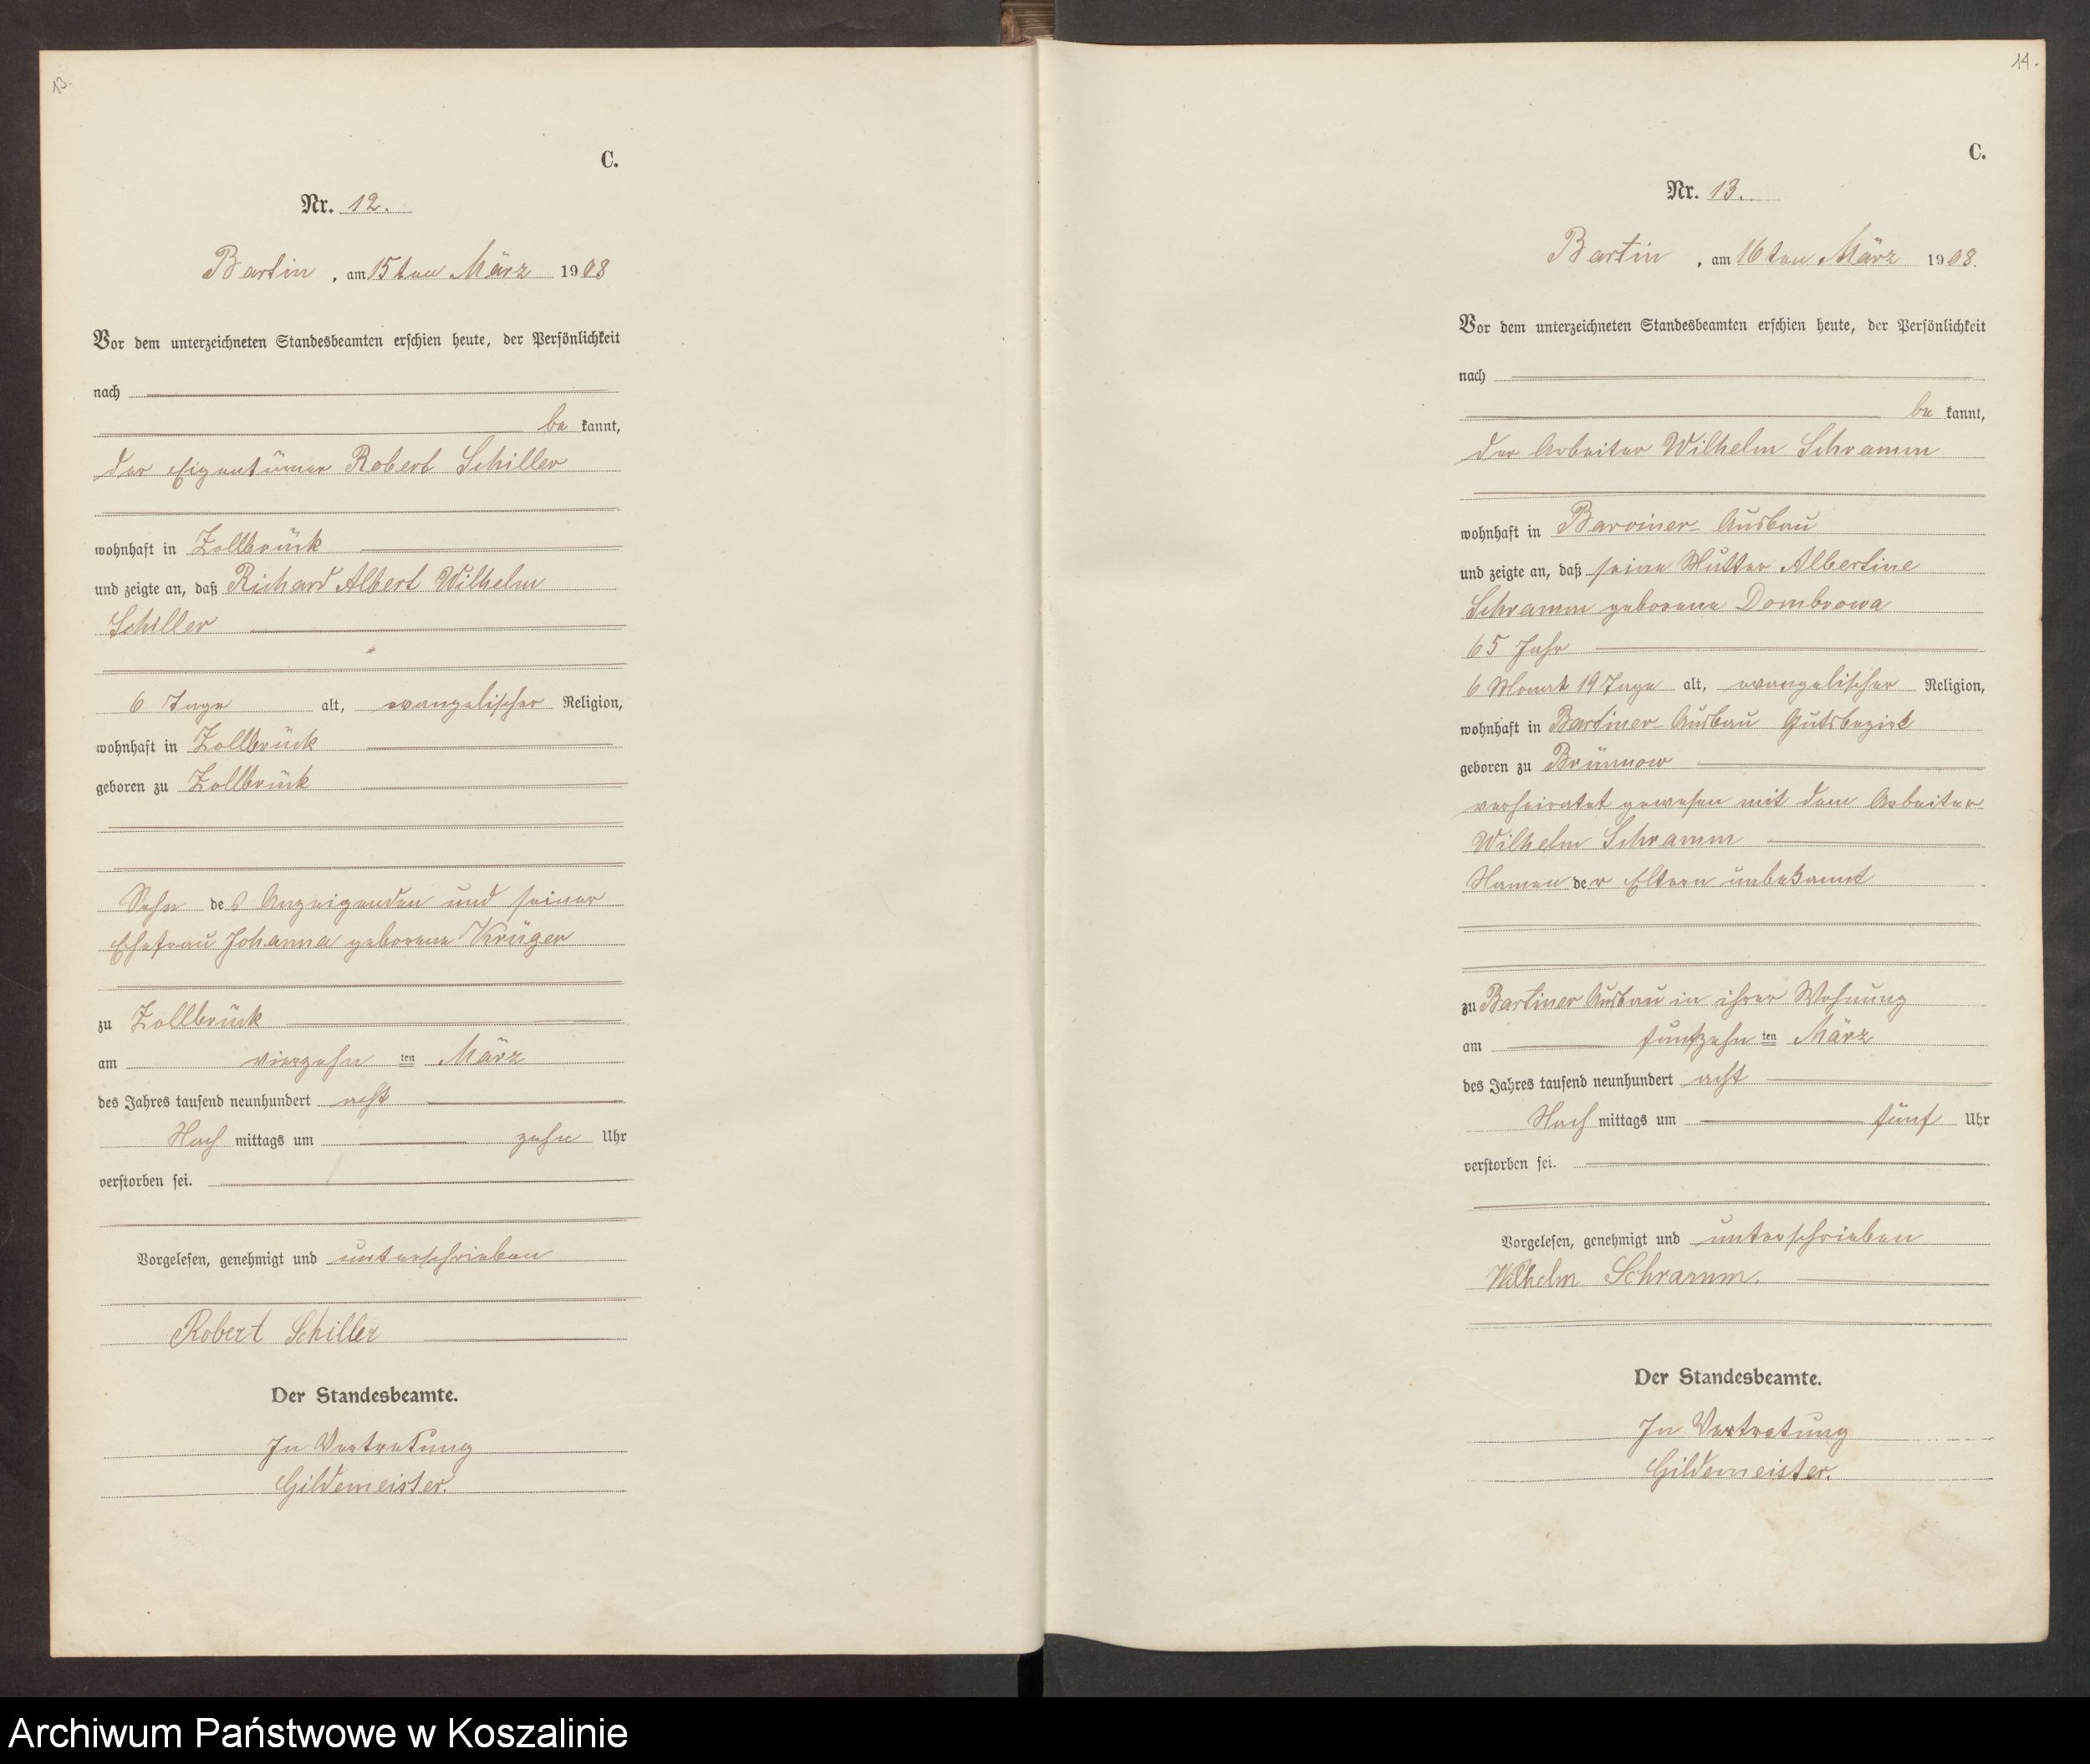 13.
C.
Nr. 12.
Bartin, am 15ten März 1908
Vor dem unterzeichneten Standesbeamten erschien heute, der Persönlichkeit
nach
be kannt,
der Eigentümer Robert Schiller
wohnhaft in Zollbrück
und zeigte an, daß Richard Albert Wilhelm
Schiller
6 Tage alt, evangelischer Religion,
wohnhaft in Zollbrück
geboren zu Zollbrück
Sohn des Anzeigenden und seiner
Ehefrau Johanna geborene Krüger
zu Zollbrück
am vierzehn ten März
des Jahres tausend neunhundert acht
Nach mittags um zehn Uhr
verstorben sei.
Vorgelesen, genehmigt und unterschrieben
Robert Schiller
Der Standesbeamte.
In Vertretung
Gildemeister.
14.
C.
Nr. 13.
Bartin, am 16ten März 1908.
Vor dem unterzeichneten Standesbeamten erschien heute, der Persönlichkeit
nach
be kannt,
der Arbeiter Wilhelm Schramm
wohnhaft in Barviner-Ausbau
und zeigte an, daß seine Mutter Albertine
Schramm geborene Dombrowa
65 Jahr
6 Monat 19 Tage alt, evangelischer Religion,
wohnhaft in Bartiner-Ausbau Gutsbezirk
geboren zu Brünnow
verheiratet gewesen mit dem Arbeiter
Wilhelm Schramm
Namen der Eltern unbekannt
zu Bartiner Ausbau in ihrer Wohnung
am fünfzehn ten März
des Jahres tausend neunhundert acht
Nach mittags um fünf Uhr
verstorben sei.
Vorgelesen, genehmigt und unterschrieben
Wilhelm Schramm.
Der Standesbeamte.
In Vertretung
Gildemeister.
Archiwum Państwowe w Koszalinie